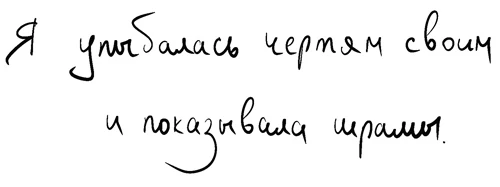 Я улыбалась чертям своим
и показывала шрамы.